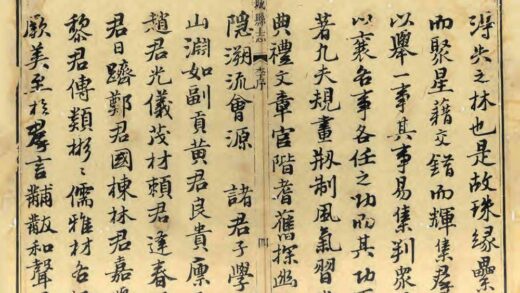 淂失之林也是故珠緣壘
而聚星藉交錯而輝集羣
以舉一事其事易集判衆
以襄各事各任之功而其功
著九夫規畫刱制風氣習
典禮文章官階耆舊探幽
縣志 李序 四
隱溯流會源 諸君子學
山淵如副貢黃君良貴廩
趙君光儀茂材賴君逢春
君日躋鄭君國棟林君嘉
黎君傳類彬彬儒雅材各
厥美至於羣言黼黻和聲